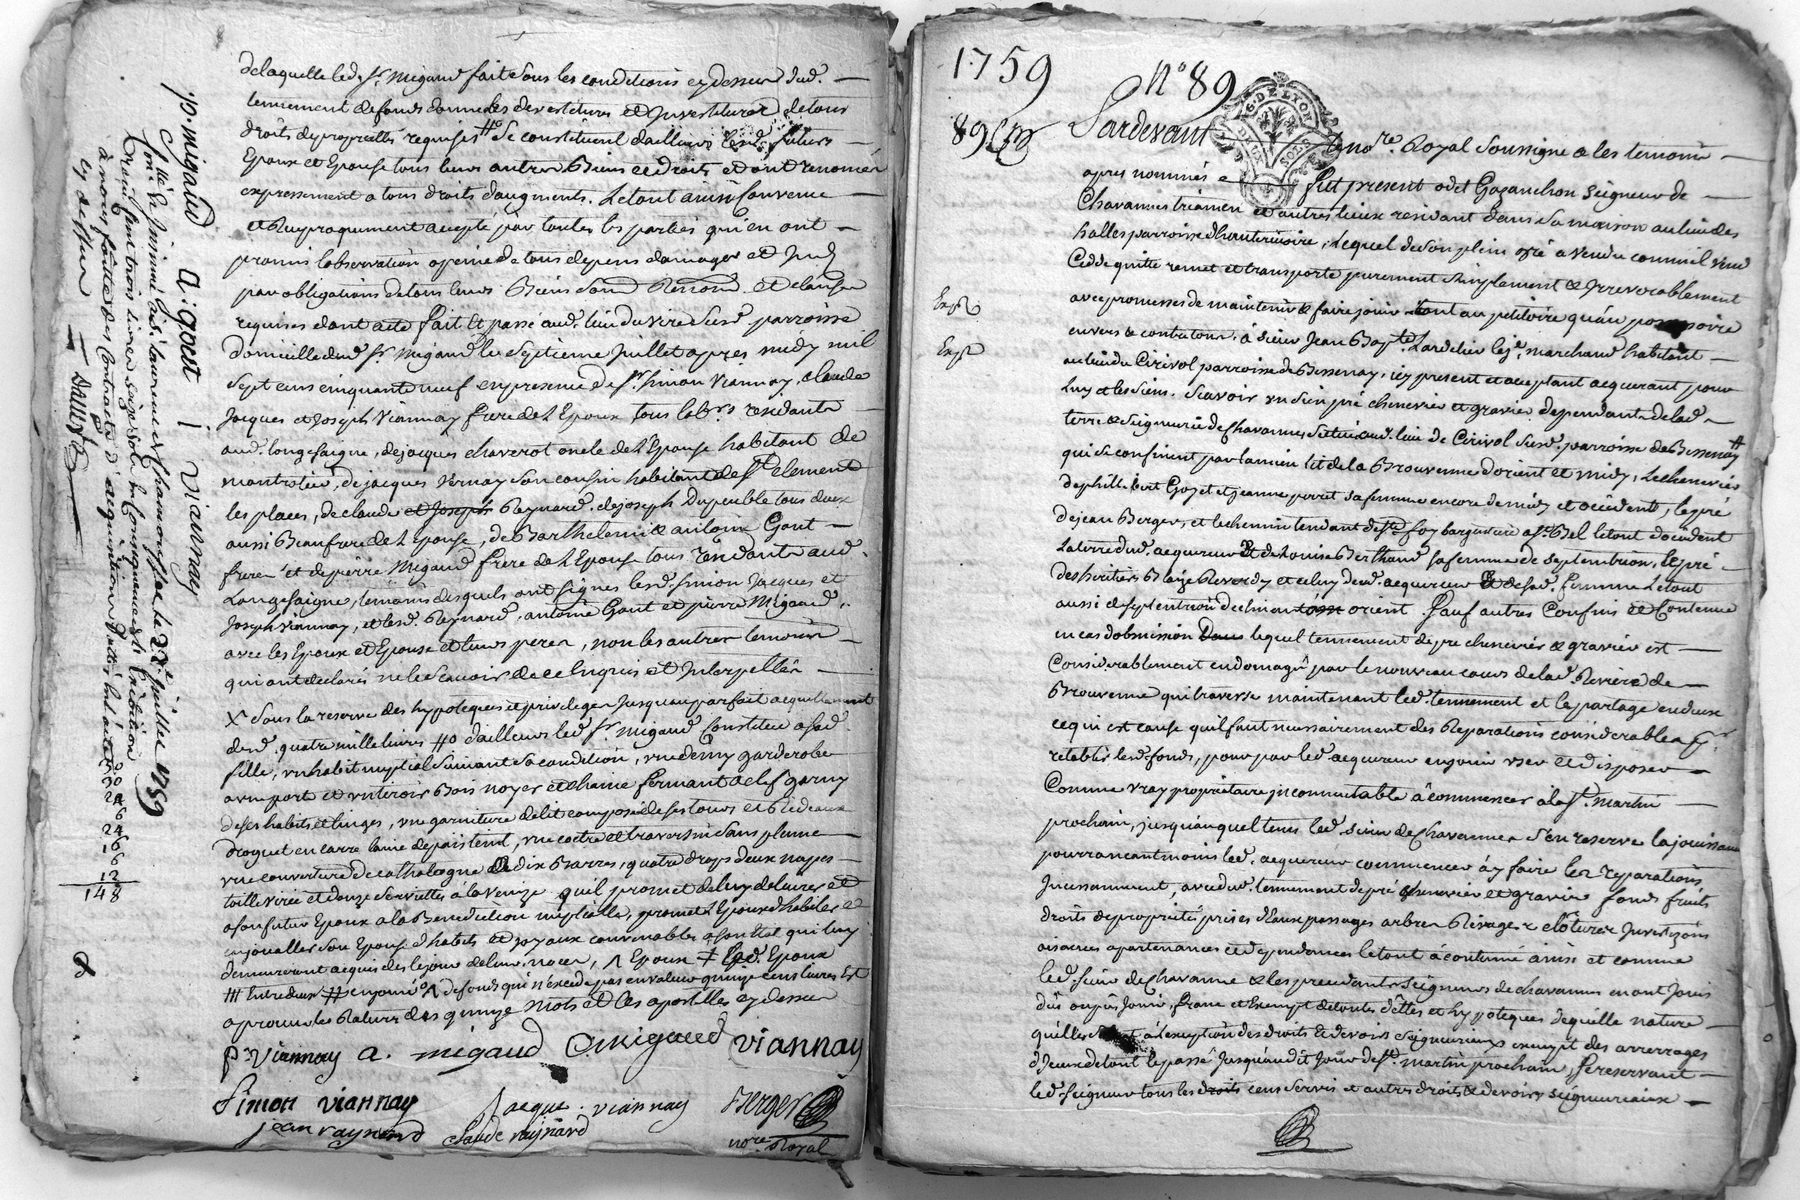 delaquelle led. Sr. migaud faite sous les conditions cy dessus dud.
tennement de fonds donne les devestitures et Investitures de tous
droits de propriettés requises #o se constituent dailleurs lesd. futurs
Epoux et Epouse tous leurs autres Biens et droits et ont renoncé
expressement a tous droits d'augments. Letout ainsi convenu
et Reciproquement accepté par toutes les parties qui en ont
promis l'observation a peine de tous depens damages et
par obligations de tous leurs Biens soud. Renond. et clauses
requises dont acte fait Et passé aud. lieu du vire susd. parroisse
domicille dud. Sr. migaud le Septieme Juillet apres midy mil
Sept cens cinquante neuf en presence de Sr. Simon Viannay, claude
Jacques et Joseph Viannay frere de L'Epoux tous lab.rs residants
aud. longesaigne, de jacques chaverot oncle de L'Epouse habitant de
montrotier, de jacques vernay son cousin habitant de St. clement
les places, de claude et Joseph Raynard, de joseph Dupeuble tous deux
aussi Beaufrere de L'Epouse, de Barthelemi & antoine Gout
freres et de pierre Migaud frere de L'Epouse tous residants aud.
Longesaigne, temoins desquels ont signés lesd. Simon Jacques et
Joseph Viannay, et lesd. Reynard, antoine Gout et pierre Migaud
avec les Epoux et Epouse et leurs peres, non les autres temoins
qui ont declarés ne le scavoir de ce Enquis et Interpellés
X Sous la reserve des hypoteques et privileges Jusqu'au parfait acquittement
desd. quatre mille livres #o d'ailleurs led. Sr. migaud constitue a sad.
fille, un habit nuptial suivant sa condition, une demy garderobe
avec port et un tiroir Bois noyer et chaine fermant a clef garny
de ses habits et linges, une garniture de lit composé de ses tours et Rideaux
droguet en carre laine de pais teint, une coetre et traversin sans plume
une couverture de cathalogne a dix Barres, quatre draps deux nappes
toille virée et douze serviettes à la Venize qu'il promet de luy delivrer et
a son futur Epoux a la Benediction nuptialle, promet L'Epoux d'habiler et
enjoualler son Epouse d'habits et joyaux convenables a son etat qui luy
demeureront acquis des le jour de leurs noces, ^ Epoux + Led. Epoux
### Entre deux # enjoins ^ de fonds qui n'excede pas en valeur quinze cens livres Est
aprouvé les Ratures des quinze mots et les apostilles cy dessus
p: viannay a. migaud C migaud viannay
Simon viannay Jacque. viannay Berger
jean raynard claude raynard nore. Royal
p. migaud a: gout i viannay
Collé & Insinué a St. laurent de chamousset le 22e. juillet 1759
Reçu vingt trois livres seize sols En consequence de l'exibition
a nous faitte des Contracts d'acquisition dattés
cy dessus
Dalleste
24
6
24
6
12
148
8
1759
No. 89
89 Em
GE DE LYON
DEUX SOLS
Pardevant le nore. Royal Soussigné & les temoins
apres nommés fut present odet Gayanchon Seigneur de
Chavannes triamen et autres lieux residant dans sa maison au lieu des
halles parroisse d'hauterivoire, Lequel de son plein gré a vendu comme il vend
Cedde quitte remet et transporte purement simplement & Irrevocablement
avec promesses de maintenir & faire jouir tant au petitoire qu'au possessoire
envers & contre tous. a sieur Jean Bapte. Lardelier lejne. marchand habitant
au lieu du Cirivol parroisse de Bessenay, icy present et aceptant acquerant pour
Luy et les siens. Scavoir un sien pré chenevier et gravier dependants de lad.
terre & Seigneurie de Chavannes situés aud. lieu de Cirivol susd. parroisse de Bessenay #
Exp.
Exp.
qui se confinent par lancien lit de la Brouvenne d'orient et midy, Le chenevier
de phillebert Goyet et jeanne perret sa femme encore de midy et occident, le pré
de jean Berger, et le chemin tendant de Ste. foy largentiere a St. Bel letout d'occident
La terre dud. acquereur & de Louise Berthaud sa femme de septentrion, le pré
des heritiers Blaize Reverdy et celuy dud. acquereur & de sad. femme Letout
aussi de septentrion declinant orient. Sauf autres confins & Contenue
en cas d'obmission lequel tennement de pré chenevier & gravier est
Considerablement endomagé par le nouveau cours de lad. Riviere de
Brouvenne qui traverse maintenant led. tennement et le partage en deux
ce qui est cause qu'il faut necessairement des Reparations considerables pr.
retablir lesd. fonds, pour par led. acquereur en jouir user et disposer
Comme vray propriétaire incommutable à commencer à la St. martin
prochain, jusqu'auquel tems led. sieur de Chavannes s'en reserve la jouissance
pourra neantmoins led. acquereur commencer a y faire les reparations
Incessamment, avec dud. tennement de pré chenevier et gravier fonds fruits
droits de proprieté prises d'eaux passages arbres Rivages & clôtures Inversions
aisances apartenances et dependances letout à coutumé ainsi et comme
led. sieur de Chavanne & les precedants Seigneurs de chavannes en ont Jouis
dû ou pû Jouir, franc et Exempt de toutes dettes et hypoteques de quelle nature
qu'elles soient a l'exception des droits & devoirs Seigneuriaux exempt des arrerages
d'Iceux de tout le passé Jusqu'audit Jour de St. martin prochain, se reservant
led. seigneur tous les droits cens servis et autres droits & devoirs seigneuriaux